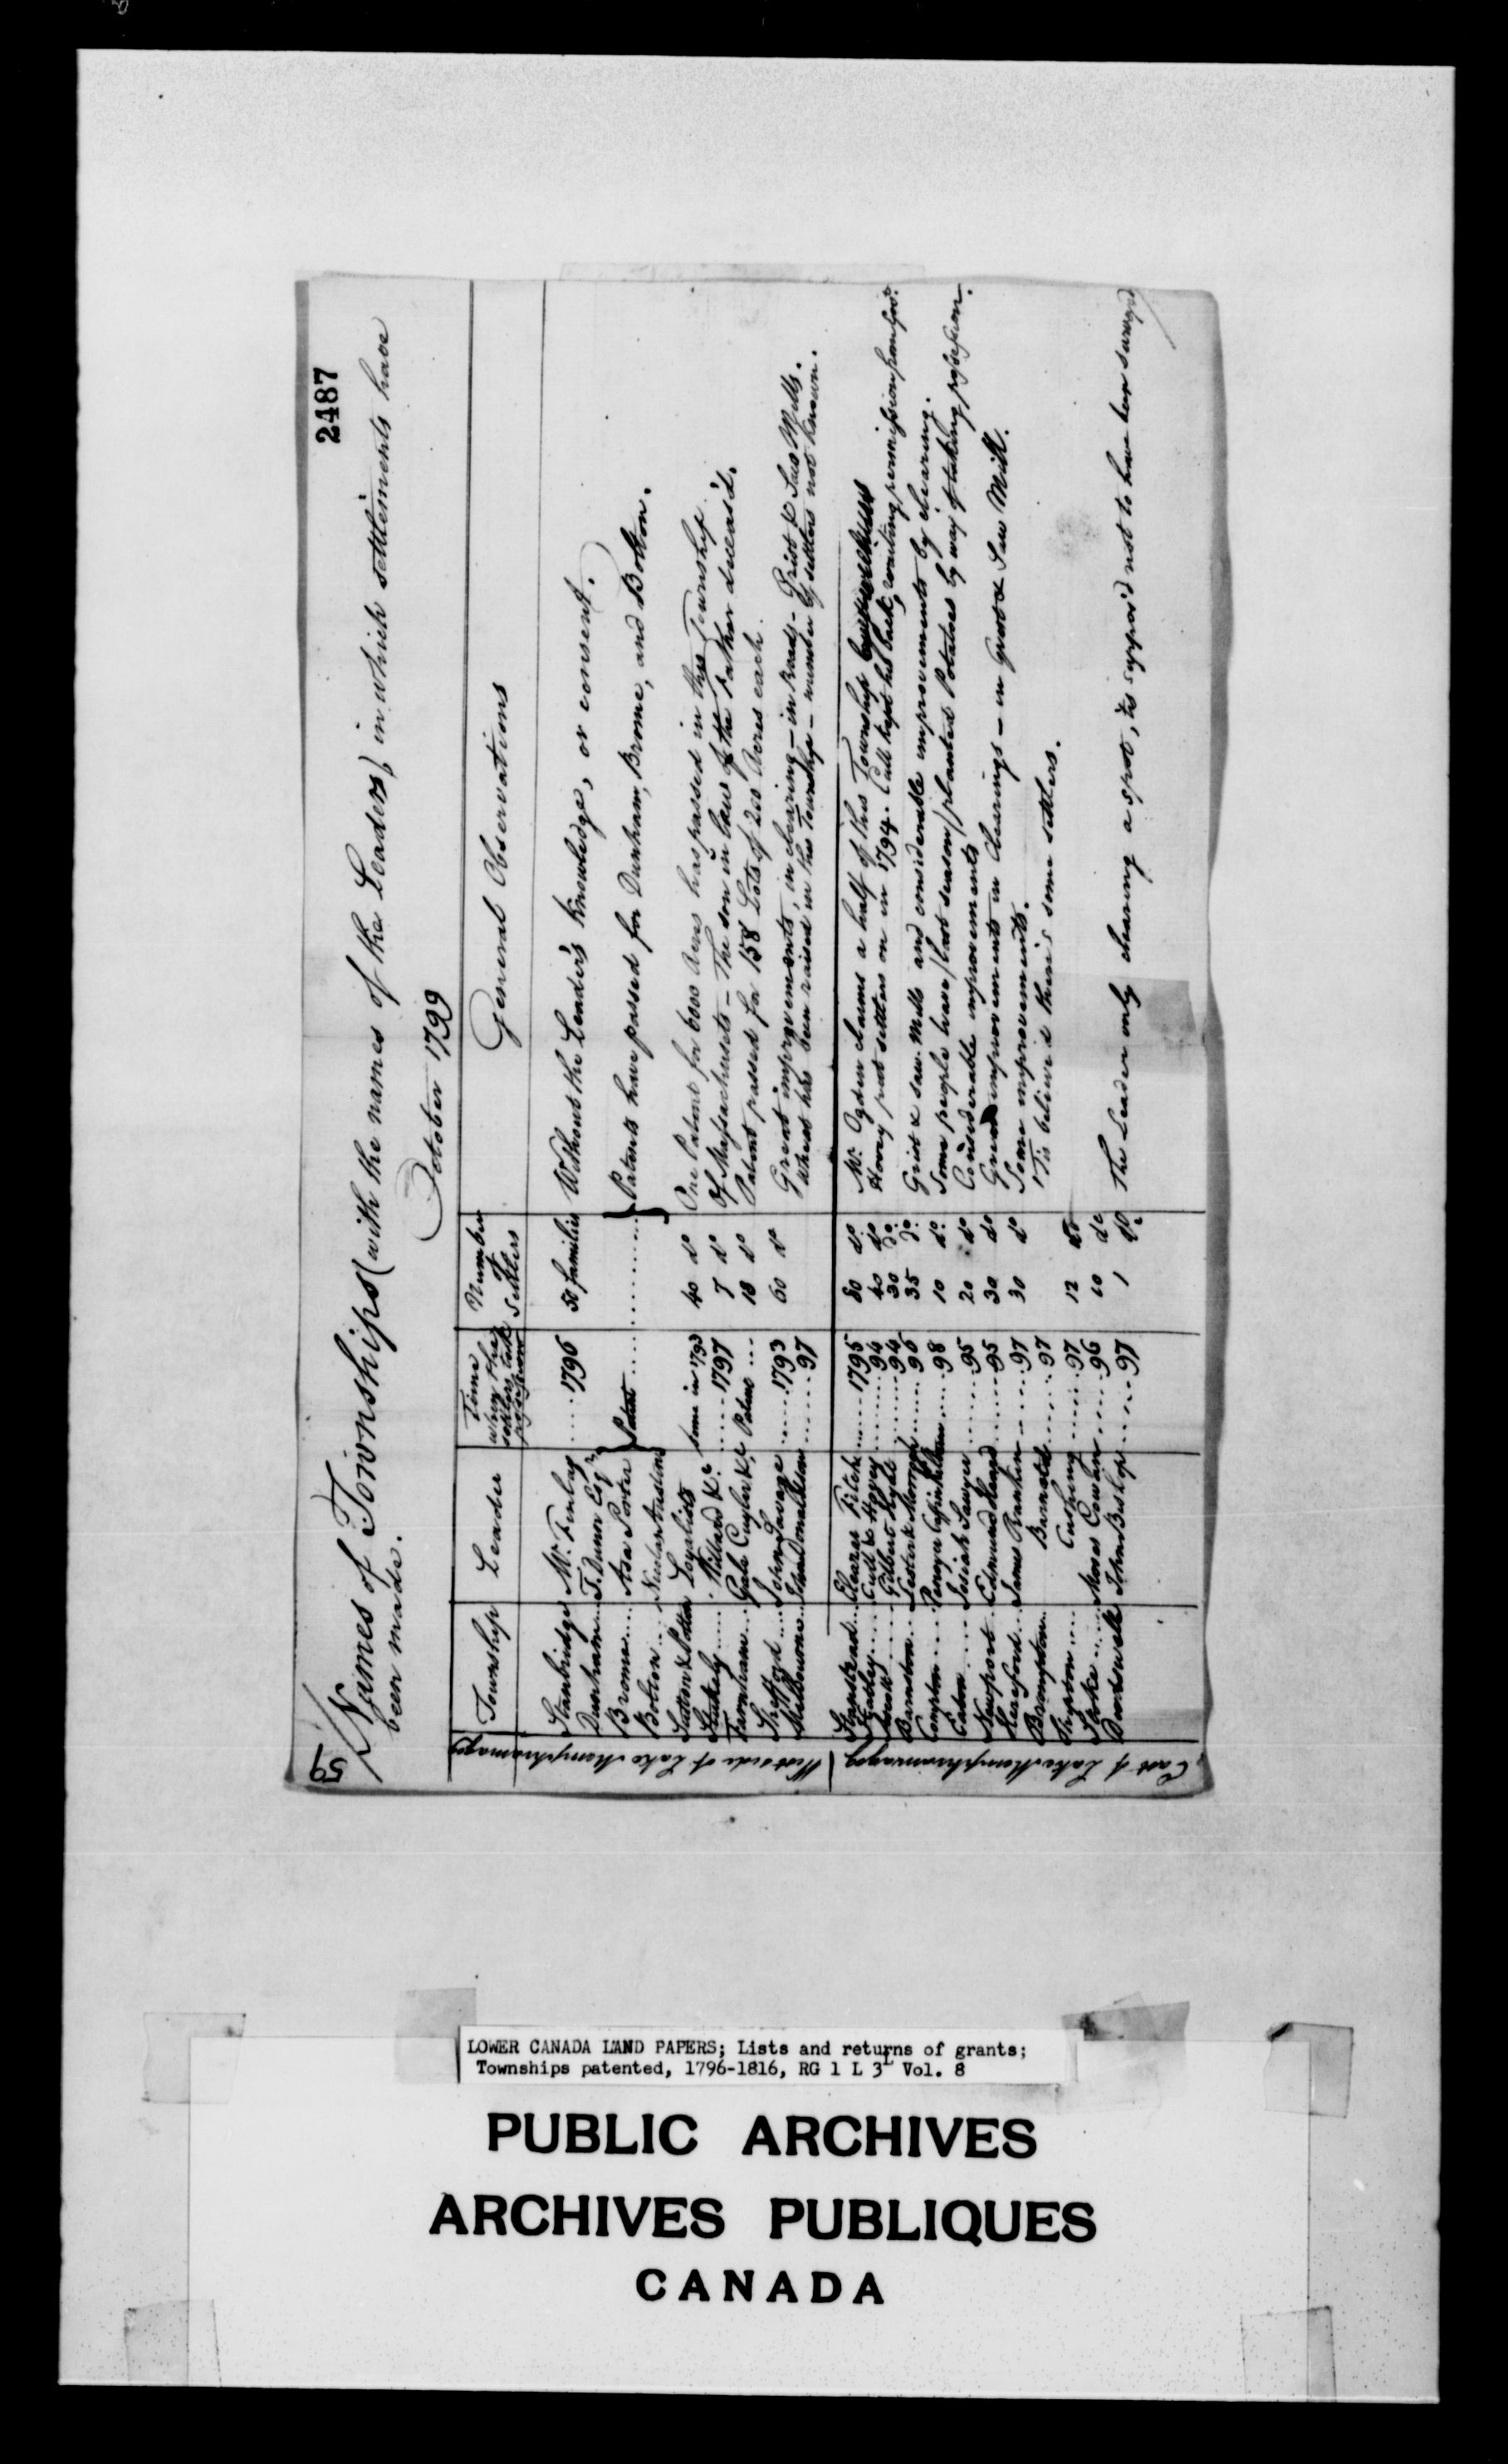 59
2487
Names of Townships (with the names of the Leaders) in which settlements have
been made.
October 1799
Township Leader Time when the settlers took possession Number of Settlers General Observations
West side of Lake Memphramagog
Stanbridge Mr. Finlay ..... 1796 50 families Without the Leader's knowledge, or consent.
Dunham... T. Dunn Esqr.
Brome.... Asa Porter } Patent ........... } Patents have passed for Dunham, Brome, and Bolton.
Bolton.... Nicolas Austin
Sutton & Potton Loyalists some in 1793 40 do One Patent for 6000 Acres has passed in this Township
Stukely..... Willard &c. ..... 1797 7 do Of Massachusets - The son in law of the Father deceas'd.
Farnham... Gale Cuyler &c Patent ... 10 do Patent passed for 158 Lots of 200 Acres each.
Shefford.... John Savage ..... 1793 60 do Great improvements, in clearing - in Roads - Grist & Saw Mills.
Melbourne... John Donaldson ...... 97 Wheat has been raised in this Township - number of settlers not known.
East of Lake Memphramagog
Stanstead... Eleazar Fitch ..... 1795 80 do. Mr. Ogden claims a half of this Township
Hatley..... Cull & Hovey ...... 94 40 do Hovey put settlers on in 1794. Cull kept his back, waiting permission from Govt.
Ascott..... Gilbert Hyatt ...... 94 30 do.
Barnston... Lester & Morrogh ...... 96 35 do. Grist & saw Mills and considerable improvements by clearing.
Compton..... ...... 98 10 do. Some people have (last season) planted Potatoes by way of taking possession.
Eaton ..... Josiah Sawyer ...... 95 20 do Considerable improvements
Newport... Edmund Heard ...... 95 30 do Great improvements in clearings - in Grist & Saw Mill.
Hereford... James Rankin ...... 97 30 do Some improvements.
Brompton... Barnard ...... 97 'Tis believ'd there's some settlers.
Shipton.... Cushing ...... 97 12 do
Stoke..... Moses Cowan ...... 96 10 do
Dudswell John Bishop ...... 97 1 do The Leader only clearing a spot, 'tis suppos'd not to have been survey'd
LOWER CANADA LAND PAPERS; Lists and returns of grants;
Townships patented, 1796-1816, RG 1 L 3L Vol. 8
PUBLIC ARCHIVES
ARCHIVES PUBLIQUES
CANADA